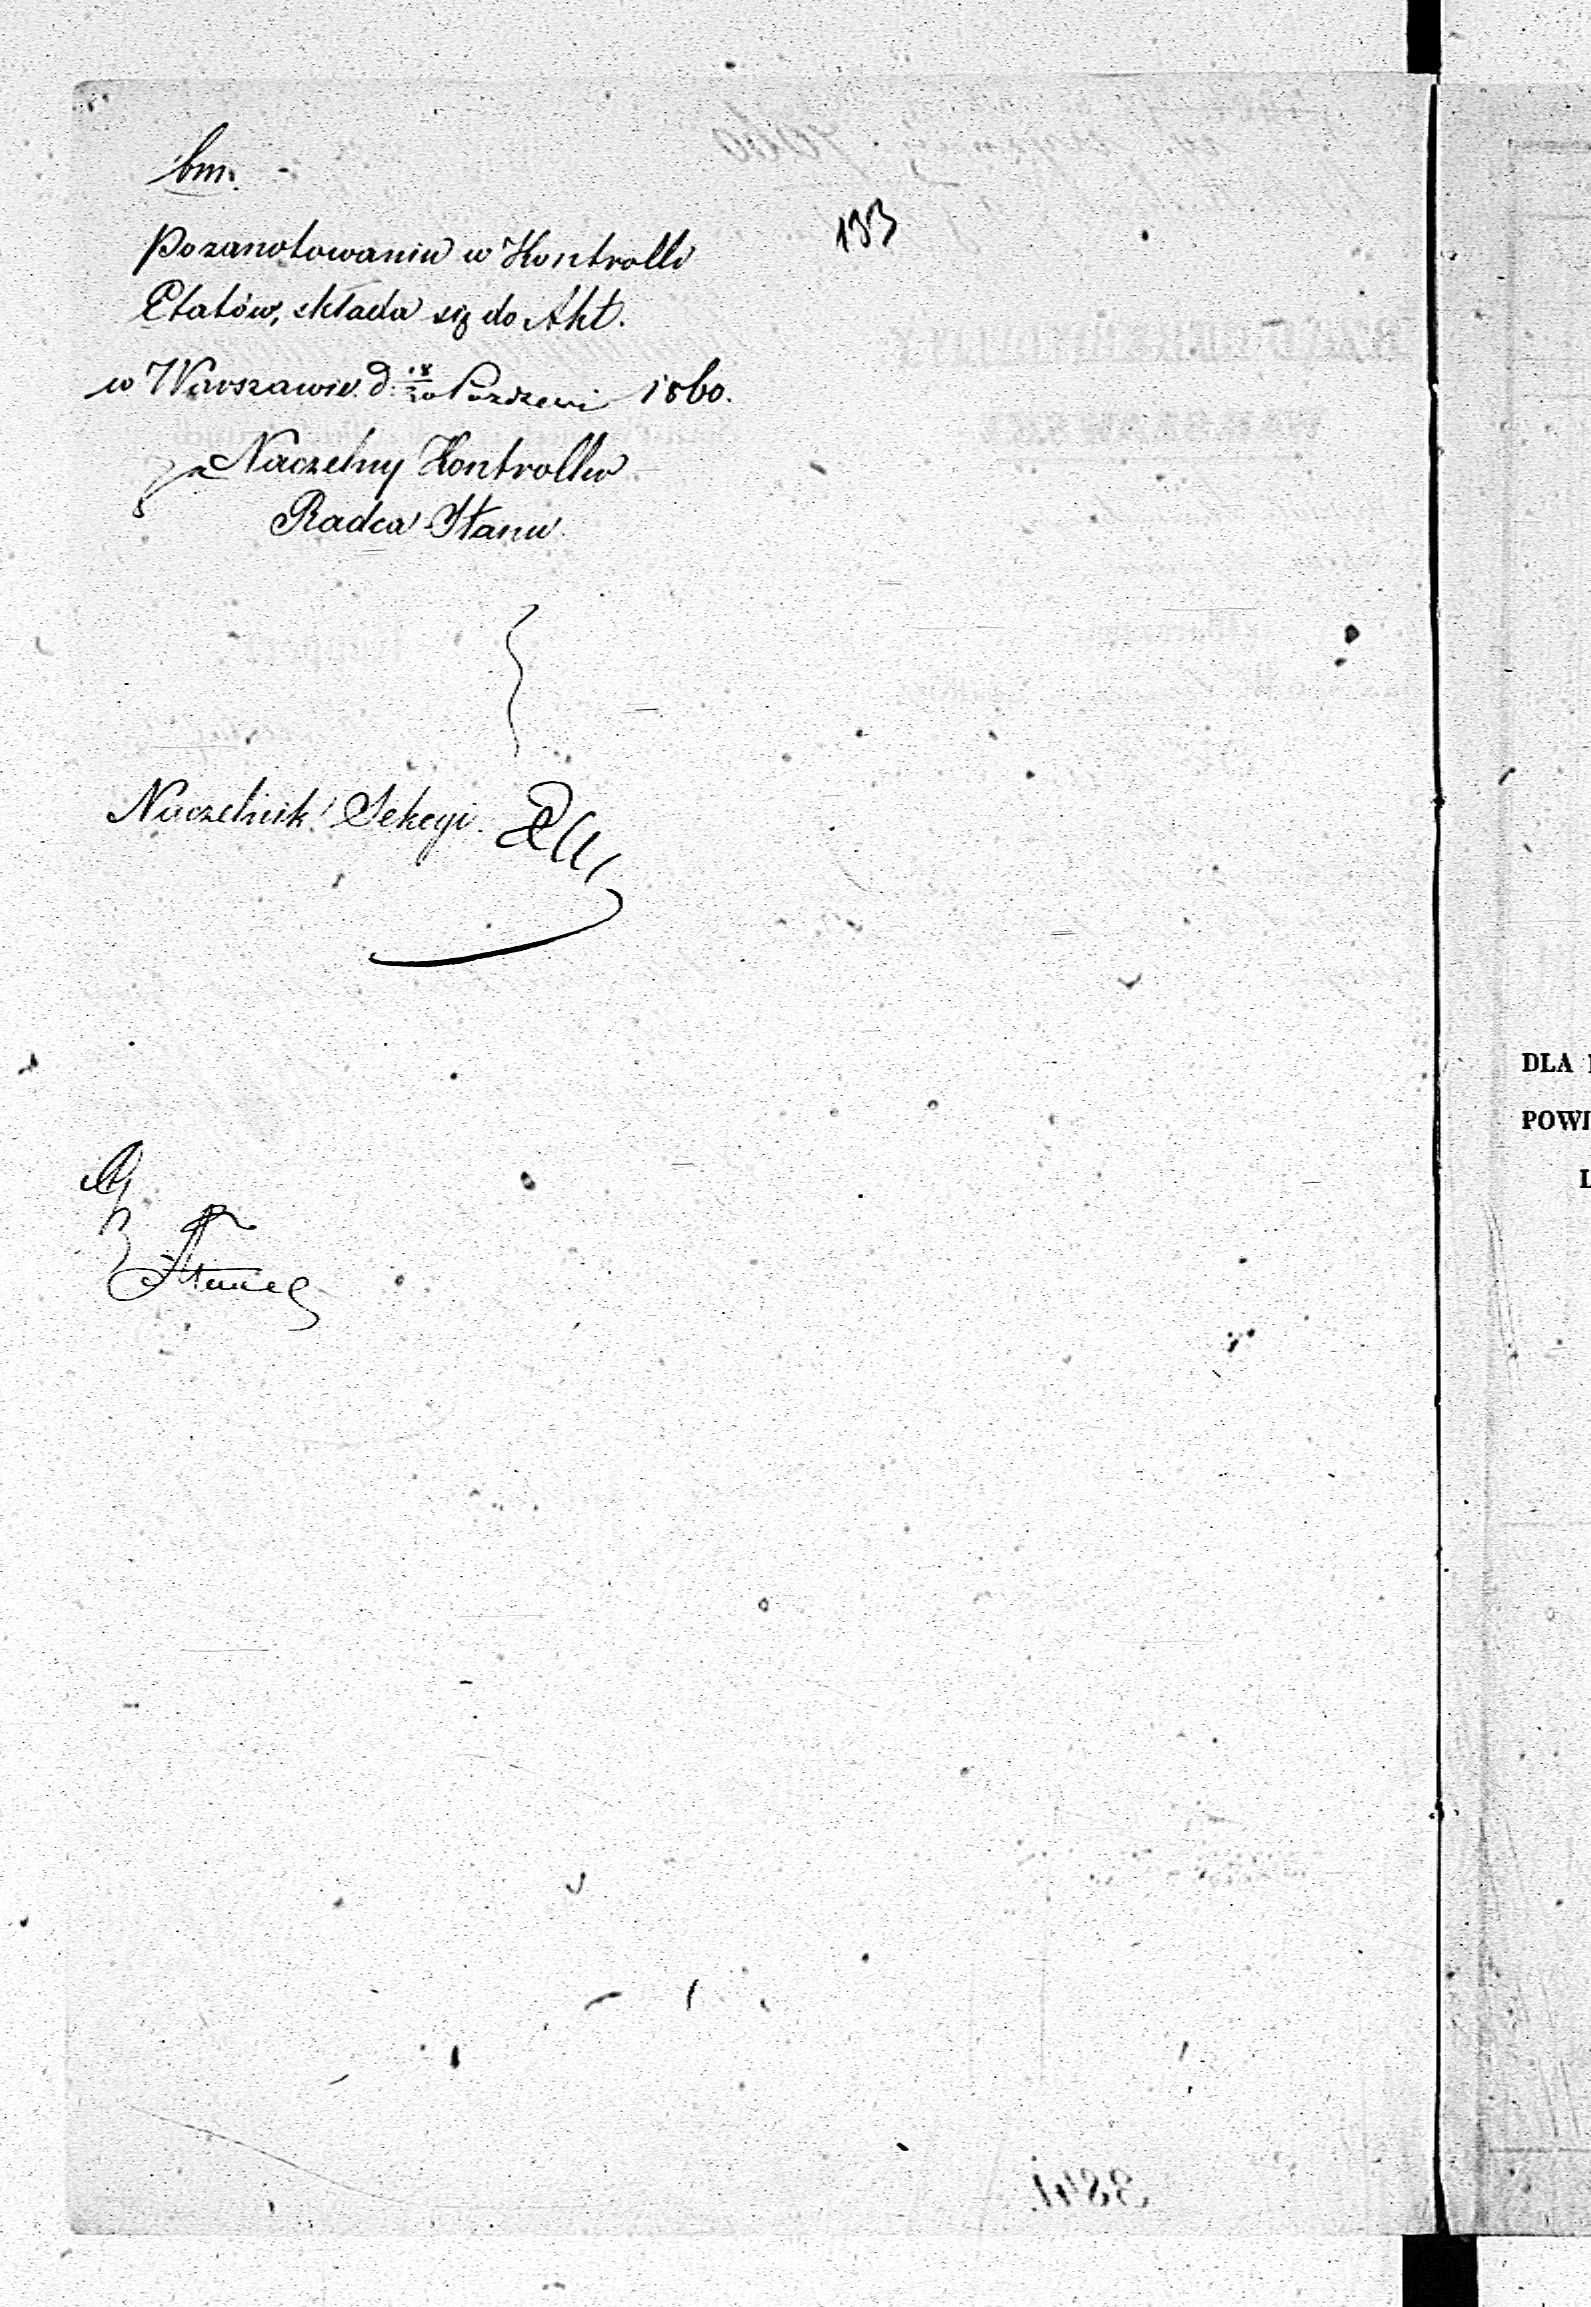 bm.
133
Pozanotowaniu w Kontrolli
Etatów, składa się do Akt.
w Warszawie d. 18/30 Paździer 1860.
Naczelny Kontroller
Radca Stanu
Naczelnik Sekcyi
DLA
POWI
3841.